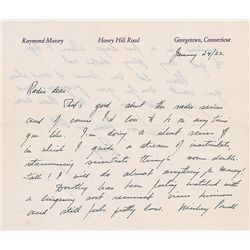 Raymond Massey Honey Hill Road Georgetown, Connecticut
January 24/52
Radie dear:
That's good about the radio series
and of course I'd love to do it any time
you like. I'm doing a short series
in which I guide a stream of inarticulate,
stammering scientists through some double-
talk! I will do almost anything for money!
Dorothy has been feeling wretched with
a lingering sort virus
and still feels pretty low. Mickey Powell